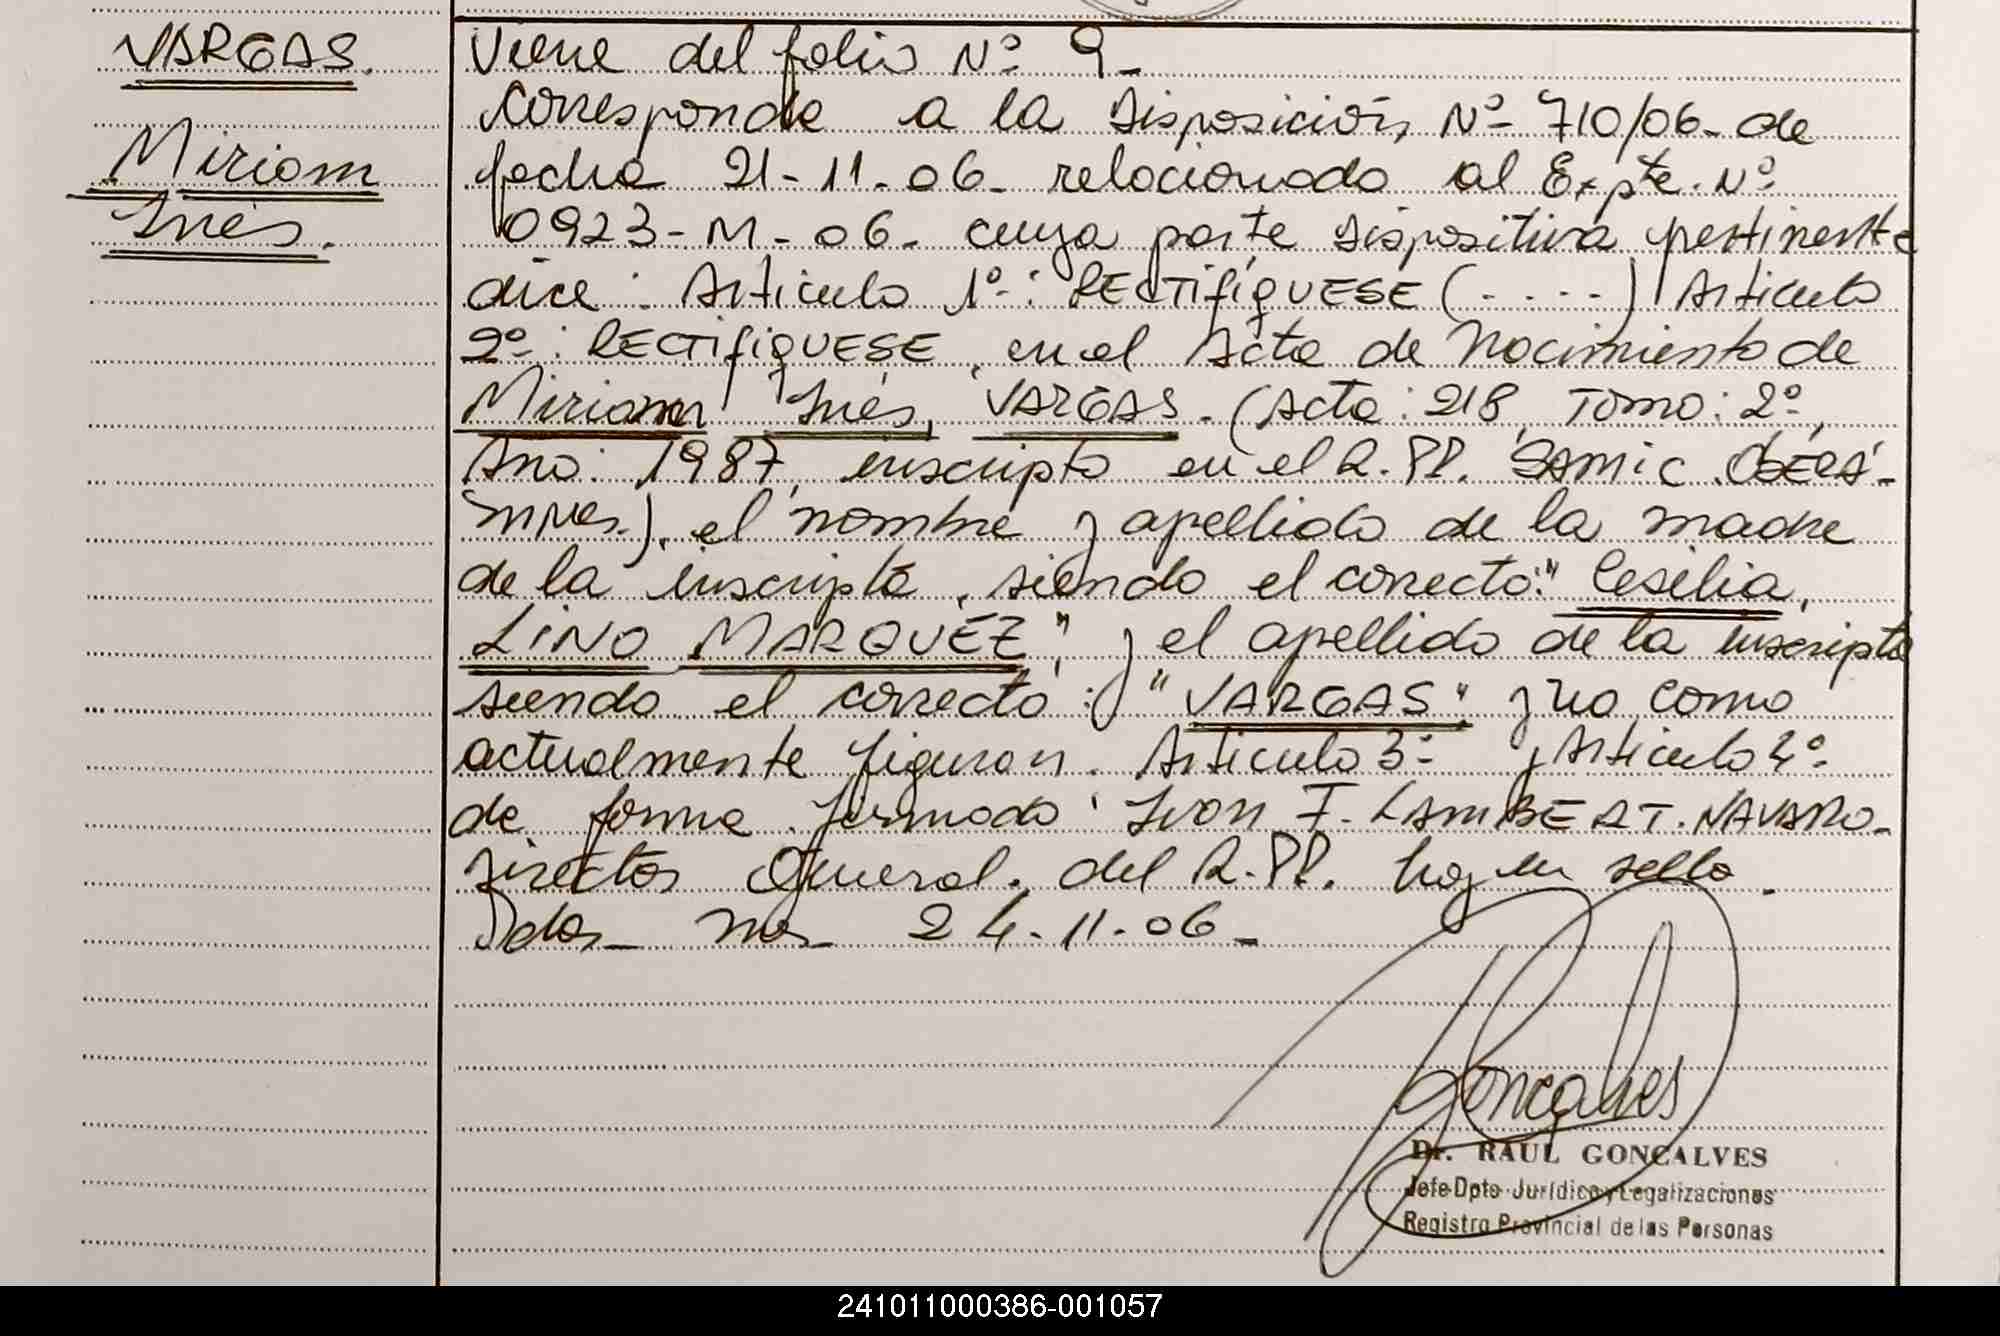 VARGAS.
Miriam
Inés.
Viene del folio Nº 9-
Corresponde a la Disposición Nº 710/06- de
fecha 21-11-06- relacionado al Expte. Nº
0923-M-06- cuya parte dispositiva pertinente
dice: Articulo 1º: RECTIFIQUESE (....) Articulo
2º: RECTIFIQUESE, en el Acta de Nacimiento de
Miriam Inés, VARGAS. (Acta: 218, Tomo: 2º,
Ano: 1987, inscripta en el R.PP. SAMIC OBERA-
Mnes.), el nombre y apellido de la madre
de la inscripta, siendo el correcto: "Cesilia,
LINO MARQUEZ", y el apellido de la inscripta
siendo el correcto: "VARGAS" y no como
actualmente figuran. Articulo 3º y Articulo 4º
de forma. firmado: Ivan F. LAMBERT. NAVARO-
Director General. del R.PP. hay un sello.
Pdas- Mnes- 24-11-06-
Goncalves
Dr. RAUL GONCALVES
Jefe Dpto Jurídico y Legalizaciones
Registro Provincial de las Personas
241011000386-001057